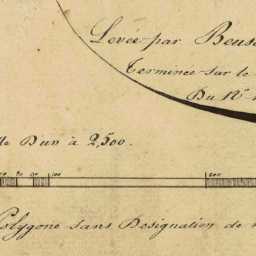 Levée par Beus
Terminée sur le
Du N.
de D'un à 2,500.
100 200
Polygone sans Designation de